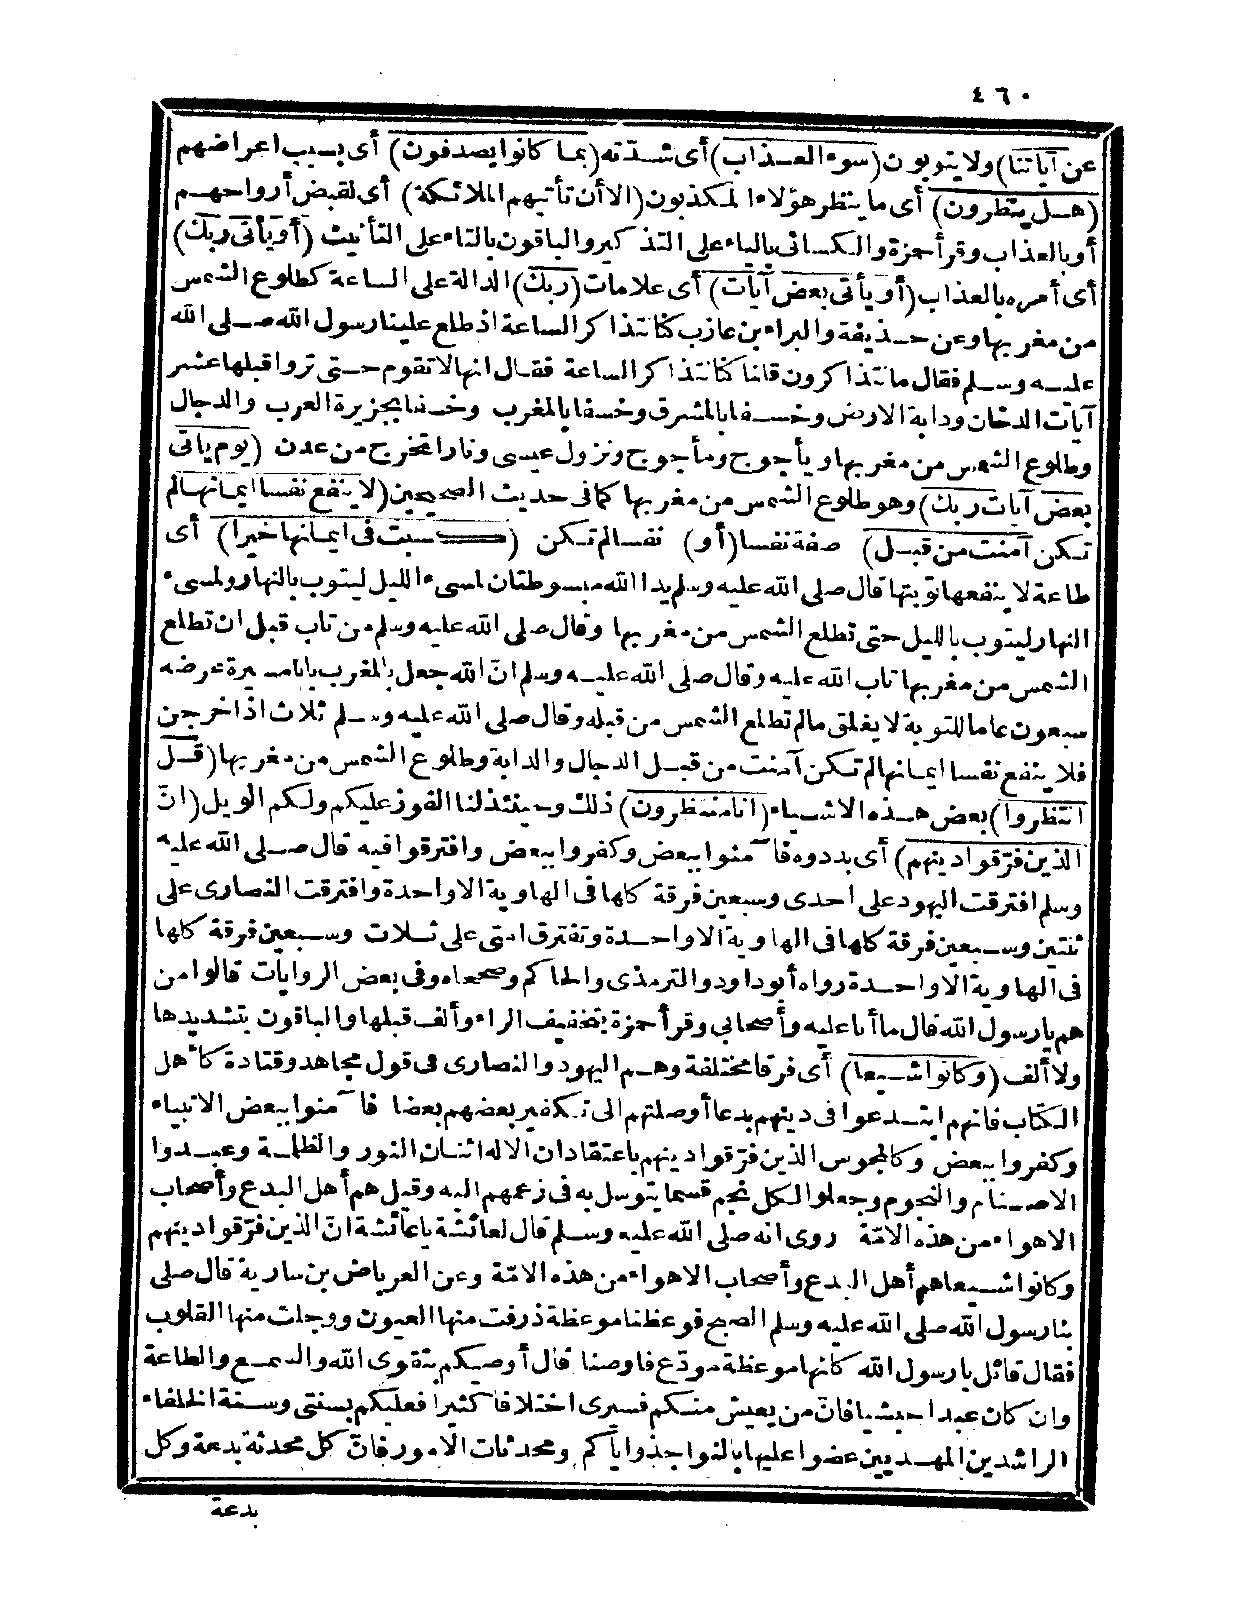 ٤٦٠
عن آياتنا) ولا يتوبون (سوء العذاب) أى شدته (بما كانوا يصدفون) أى بسبب اعراضهم
(هل ينظرون) أى ما ينتظر هؤلاء المكذبون (الا أن تأتيهم الملائكة) أى لقبض أرواحهم
أو بالعذاب وقرأ حمزة والكسائى بالياء على التذكير والباقون بالتاء على التأنيث (أو يأتى ربك)
أى أمره بالعذاب (أو يأتى بعض آيات) أى علامات (ربك) الدالة على الساعة كطلوع الشمس
من مغربها وعن حذيفة والبراء بن عازب كنا نتذاكر الساعة اذ طلع علينا رسول الله صلى الله
عليه وسلم فقال ما تتذاكرون قلنا كنا نتذاكر الساعة فقال انها لا تقوم حتى تروا قبلها عشر
آيات الدخان ودابة الارض وخسفا بالمشرق وخسفا بالمغرب وخسفا بجزيرة العرب والدجال
وطلوع الشمس من مغربها ويأجوج ومأجوج ونزول عيسى ونارا تخرج من عدن (يوم يأتى
بعض آيات ربك) وهو طلوع الشمس من مغربها كما فى حديث الصحيحين (لا ينفع نفسا ايمانها لم
تكن آمنت من قبل) صفة نفسا (أو) نفسا لم تكن (كسبت فى ايمانها خيرا) أى
طاعة لا ينفعها توبتها قال صلى الله عليه وسلم يدا الله مبسوطتان لمسىء الليل ليتوب بالنهار ولمسىء
النهار ليتوب بالليل حتى تطلع الشمس من مغربها وقال صلى الله عليه وسلم من تاب قبل ان تطلع
الشمس من مغربها تاب الله عليه وقال صلى الله عليه وسلم ان الله جعل بالمغرب بابا مسيرة عرضه
سبعون عاما للتوبة لا يغلق مالم تطلع الشمس من قبله وقال صلى الله عليه وسلم ثلاث اذا خرجن
فلا ينفع نفسا ايمانها لم تكن آمنت من قبل الدجال والدابة وطلوع الشمس من مغربها (قل
انتظروا) بعض هذه الاشياء (انا منتظرون) ذلك وحينئذ لنا الفوز عليكم ولكم الويل (ان
الذين فرّقوا دينهم) أى بددوه فآمنوا ببعض وكفروا ببعض وافترقوا فيه قال صلى الله عليه
وسلم افترقت اليهود على احدى وسبعين فرقة كلها فى الهاوية الا واحدة وافترقت النصارى على
ثنتين وسبعين فرقة كلها فى الهاوية الا واحدة وتفترق امتى على ثلاث وسبعين فرقة كلها
فى الهاوية الا واحدة رواه أبو داود والترمذى والحاكم وصححاه وفى بعض الروايات قالوا من
هم يا رسول الله قال ما أنا عليه وأصحابى وقرأ حمزة بتخفيف الراء وألف قبلها والباقون بتشديدها
ولا ألف (وكانوا شيعا) أى فرقا مختلفة وهم اليهود والنصارى فى قول مجاهد وقتادة كأهل
الكتاب فانهم ابتدعوا فى دينهم بدعا أوصلتهم الى تكفير بعضهم بعضا فآمنوا ببعض الانبياء
وكفروا ببعض وكالمجوس الذين فرّقوا دينهم باعتقاد ان الاله اثنان النور والظلمة وعبدوا
الاصنام والنجوم وجعلوا لكل نجم قسما يتوسل به فى زعمهم اليه وقيل هم أهل البدع وأصحاب
الاهواء من هذه الامّة روى انه صلى الله عليه وسلم قال لعائشة يا عائشة ان الذين فرّقوا دينهم
وكانوا شيعا هم أهل البدع وأصحاب الاهواء من هذه الامّة وعن العرباض بن سارية قال صلى
بنا رسول الله صلى الله عليه وسلم الصبح فوعظنا موعظة ذرفت منها العيون ووجلت منها القلوب
فقال قائل يا رسول الله كأنها موعظة مودّع فاوصنا قال أوصيكم بتقوى الله والسمع والطاعة
وان كان عبدا حبشيا فان من يعش منكم فسيرى اختلافا كثيرا فعليكم بسنتى وسنة الخلفاء
الراشدين المهديين عضوا عليها بالنواجذ واياكم ومحدثات الامور فان كل محدثة بدعة وكل
بدعة